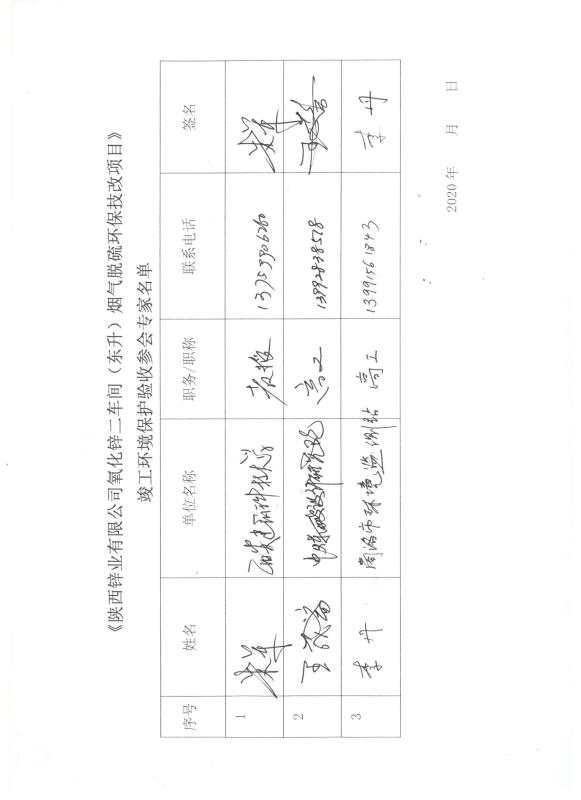 《陕西锌业有限公司氧化锌二车间（东升）烟气脱硫环保技改项目》
竣工环境保护验收参会专家名单
序号 姓名 单位名称 职务/职称 联系电话 签名
1 西安建筑科技大学 教授 13759906260
2 王 高工 13992838578 王
3 李丹 商洛市环境监测站 高工 13991561843 李丹
2020年 月 日